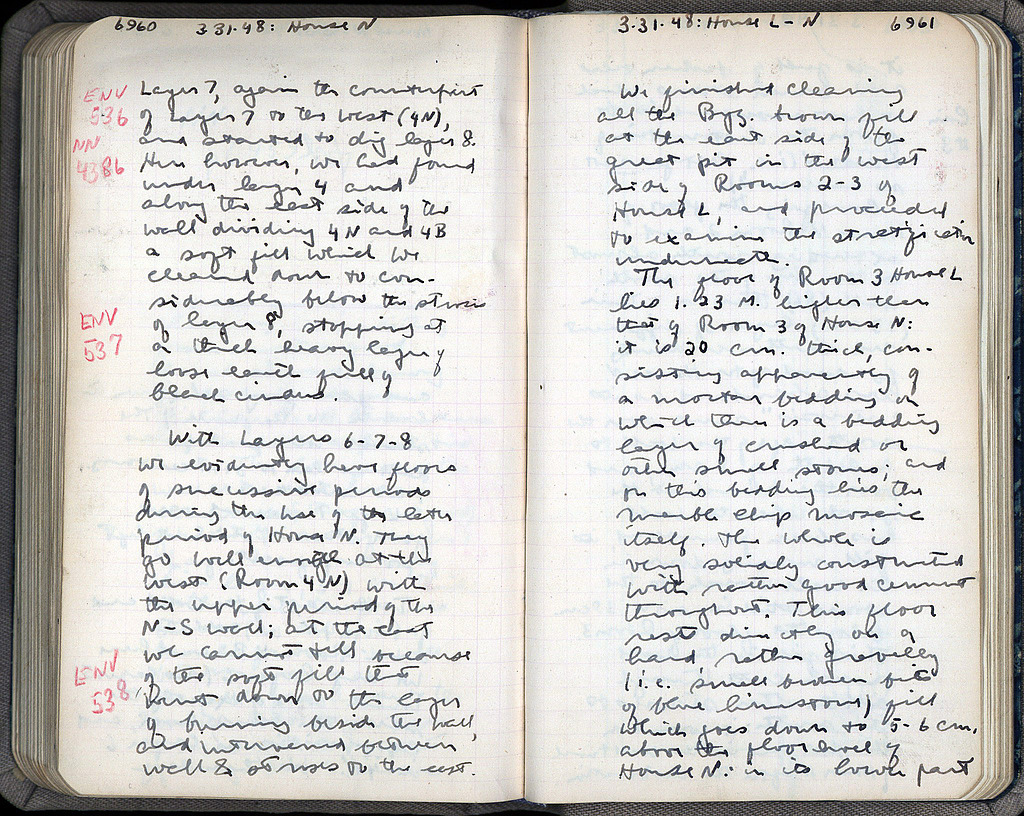 6960 3-31-48: House N
ENV
536
NN
4386
Layer 7, again the counterpart
of Layer 7 to the west (4N),
and started to dig layer 8.
Here however, we had found
under layer 4 and
along the east side of the
wall dividing 4N and 4B
a soft fill which we
cleaned down to con-
siderably below the stroses
of layer 8, stopping at
a thick heavy layer of
loose earth full of
black cinders.
ENV
537
With Layers 6-7-8
we evidently have floors
of successive periods
during the use of the later
period of House N. They
go well enough at the
west (Room 4N) with
the upper period of the
N-S wall; at the east
we cannot tell because
of the soft fill that
went down to the layer
of burning beside the wall,
and intervened between
wall & stroses to the east.
ENV
538
3-31-48: House L-N 6961
We finished cleaning
all the Byz. brown fill
at the east side of the
great pit in the west
side of Rooms 2-3 of
House L, and proceeded
to examine the stratification
underneath.
The floor of Room 3 House L
lies 1.23 M. higher than
that of Room 3 of House N:
it is 20 cm. thick, con-
sisting apparently of
a mortar bedding on
which there is a bedding
layer of crushed or
other small stones; and
on this bedding lies the
marble chip mosaic
itself. The whole is
very solidly constructed
with rather good cement
throughout. This floor
rests directly on a
hard, rather gravelly
(i.e. small broken bits
of blue limestone) fill
which goes down to 5-6 cm.
above the floor level of
House N: in its lower part